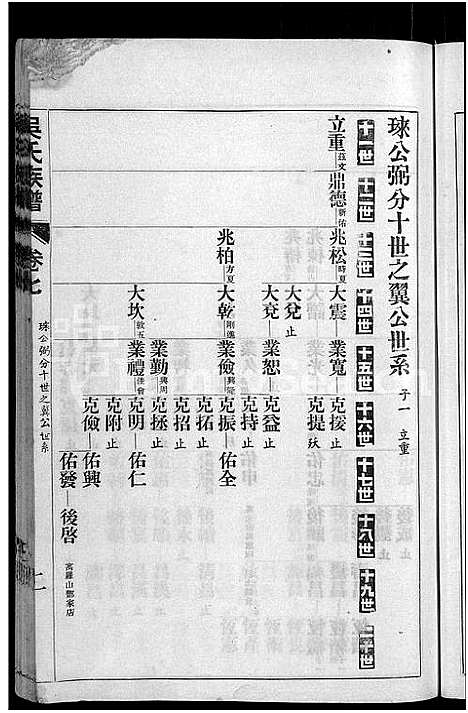 琜公弼分十世之翼公世系 子一 立重
十一世 十二世 十三世 十四世 十五世 十六世 十七世 十八世 十九世 二十世
立重 茲文 鼎德 新佑 兆松 時夏 大震 業寬 克援 止
克提 殀
大兌 止
大兗 業恕 克益 止
克持 止
兆柏 方夏 大乾 剛進 業儉 興榮 克振 佑全
克拓 止
克招 止
業勤 興周 克拯 止
大坎 敦五 業禮 克明 佑仁
克附 止
克儉 佑興
佑發 後啓 萬羅山鄧家店
吳氏族譜 卷七
琜公弼分十世之翼公世系